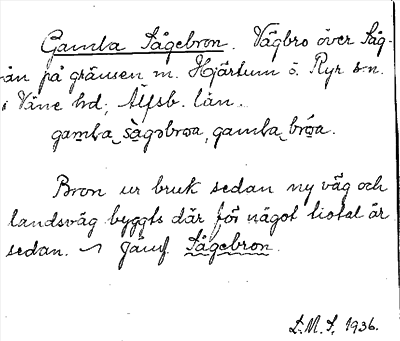 Gamla Sågebron. Vägbro över Såg-
ån på gränsen m. Hjärtum o. Ryr s:n.
i Väne hd, Älfsb. län.
gamla sågəbroa, gamla broa.
Bron ur bruk sedan ny väg och
landsväg byggts där för något tiotal år
sedan. ~ Jämf. Sågebron.
D.M.S. 1936.